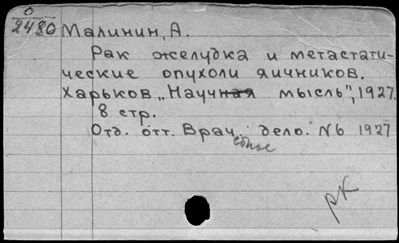 0
2480 Малинин, А.
Рак желудка и метастати-
ческие опухоли яичников.
Харьков „Научная мысль", 1927.
8 стр.
Отд. отт. Врач. дело. №6 1927
рк